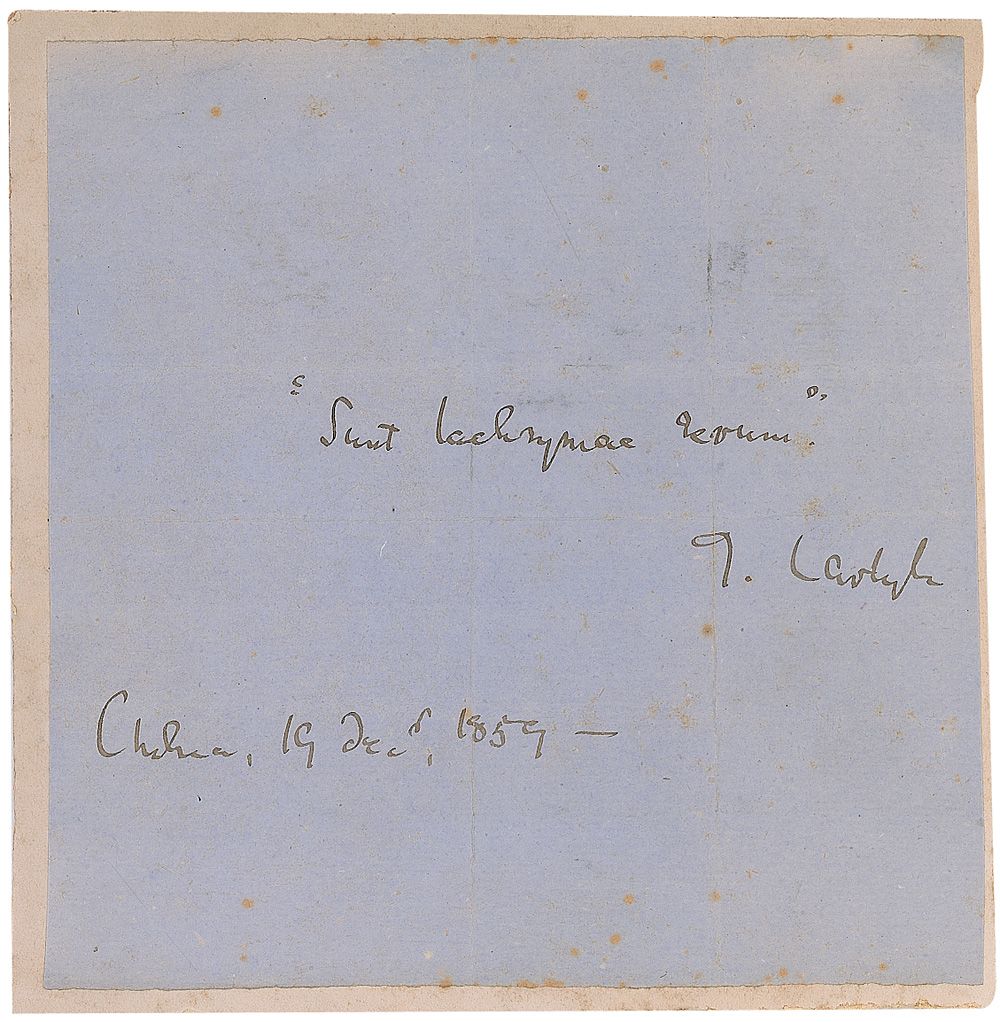 "Sunt lachrymae rerum."
T. Carlyle
Chelsea, 19 Decr, 1859 —